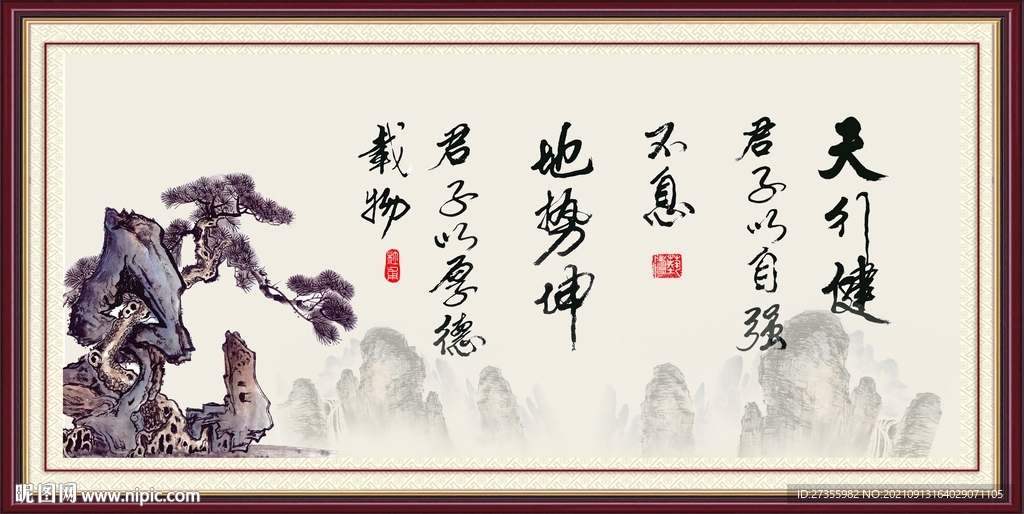 天行健
君子以自强
不息
地势坤
君子以厚德
载物
昵图网 www.nipic.com
ID:27355982 NO:20210913164029071105